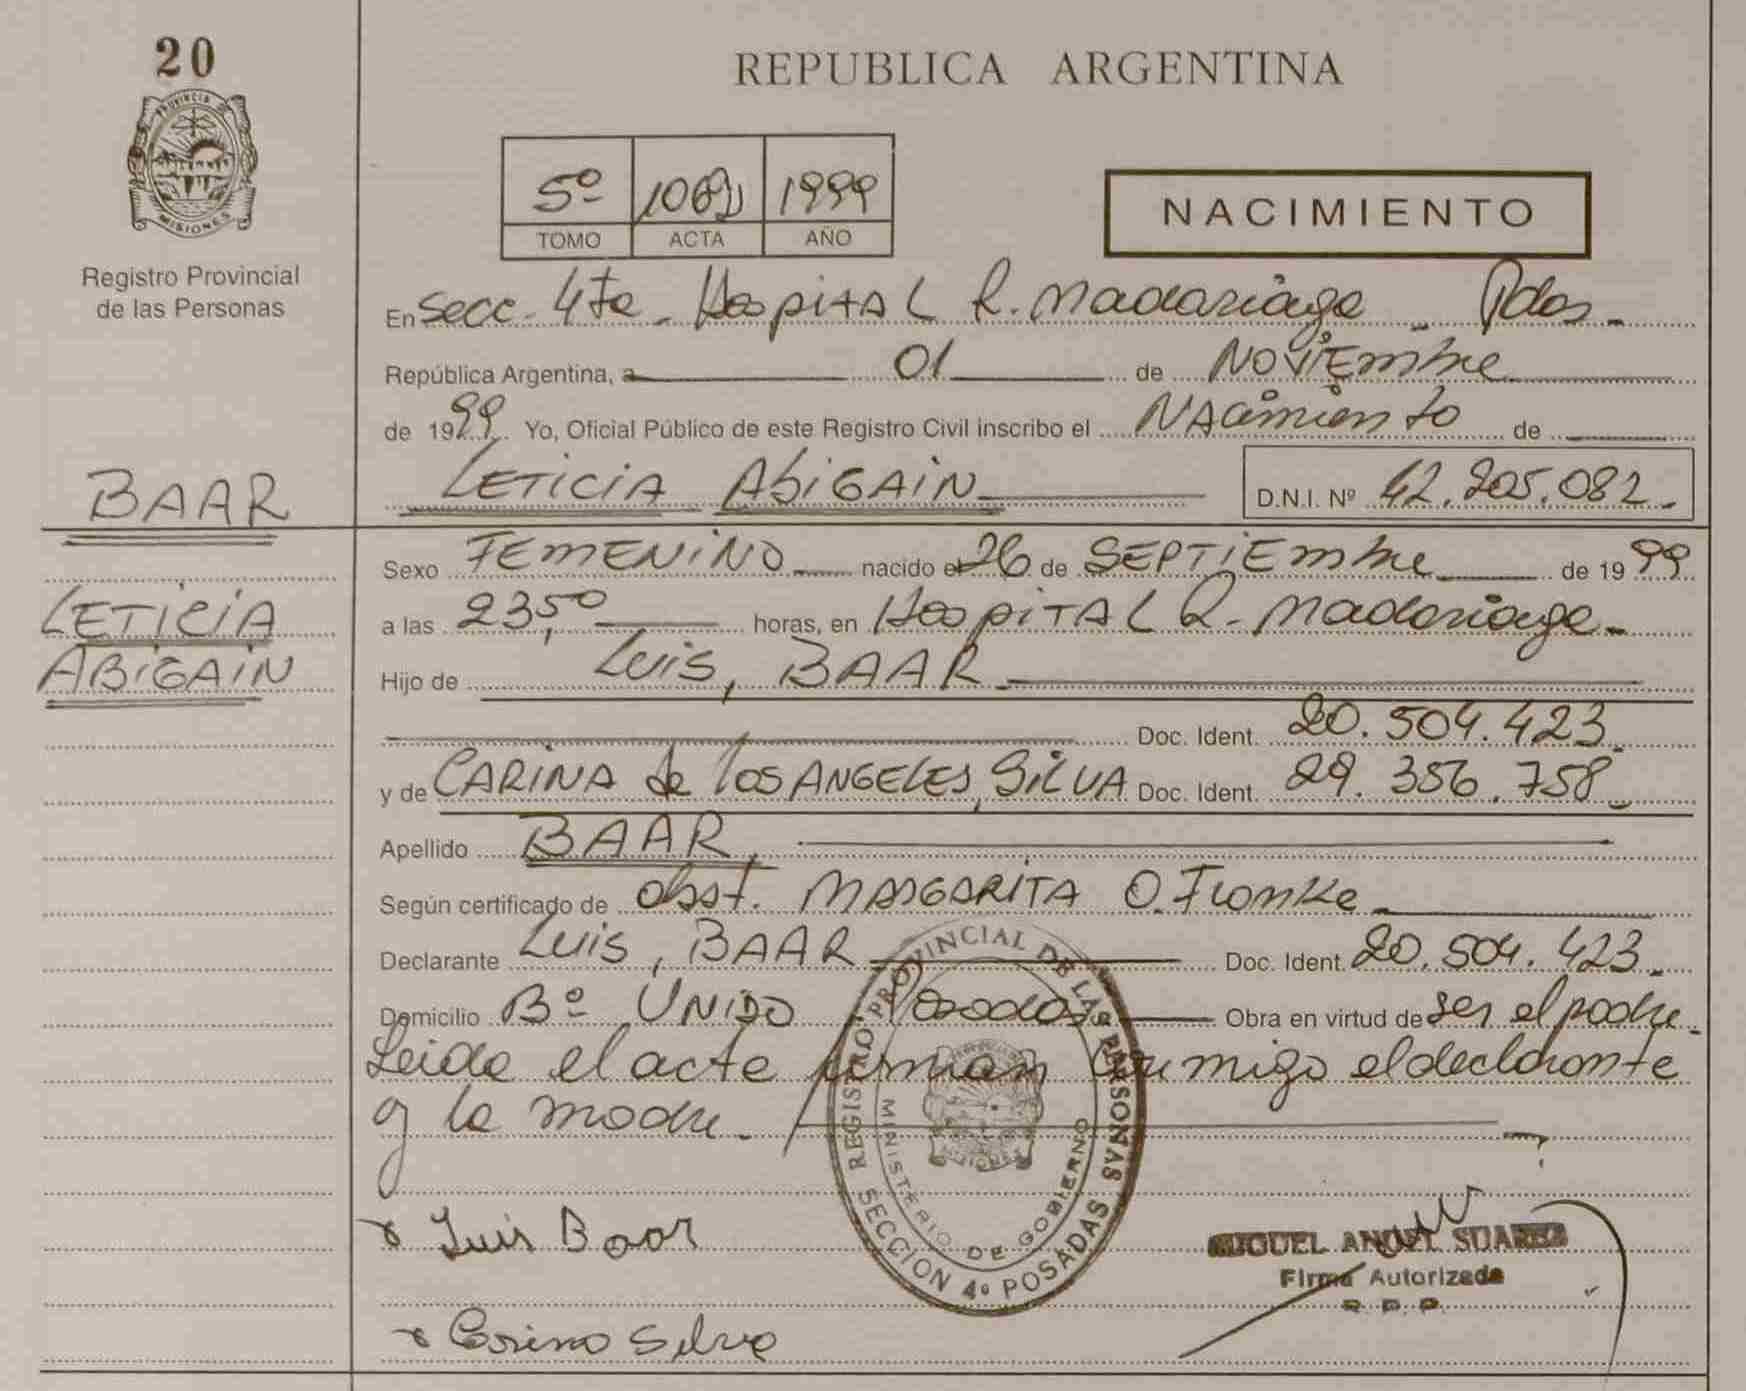 20
REPUBLICA ARGENTINA
PROVINCIA DE
MISIONES
Registro Provincial
de las Personas
5º 1999
TOMO ACTA AÑO
NACIMIENTO
En Secc. 4ta. Hospital R. Madariaga - Pdas -
República Argentina, a 01 de Noviembre
de 1999. Yo, Oficial Público de este Registro Civil inscribo el Nacimiento de
LETICIA ABIGAIN D.N.I. Nº 42.205.082.-
BAAR
LETICIA
ABIGAIN
Sexo FEMENINO nacido el 26 de SEPTIEmbre de 1999
a las 23,50 horas, en Hospital R. Madariaga -
Hijo de Luis, BAAR
Doc. Ident. 20.504.423.-
y de CARINA de los ANGELES, SILVA Doc. Ident. 29.356.758 -
Apellido BAAR,
Según certificado de obst. MARGARITA O. Fromke
Declarante Luis, BAAR Doc. Ident. 20.504.423.-
Domicilio Bº UNIDO Posadas Obra en virtud de ser el padre.-
Leida el acta firman conmigo el declarante
y la madre.-
REGISTRO PROVINCIAL DE LAS PERSONAS
MINISTERIO DE GOBIERNO
SECCION 4º POSADAS
MISIONES
Luis Baar
MIGUEL ANGEL SUAREZ
Firma Autorizada
R. P. P.
Carina Silva